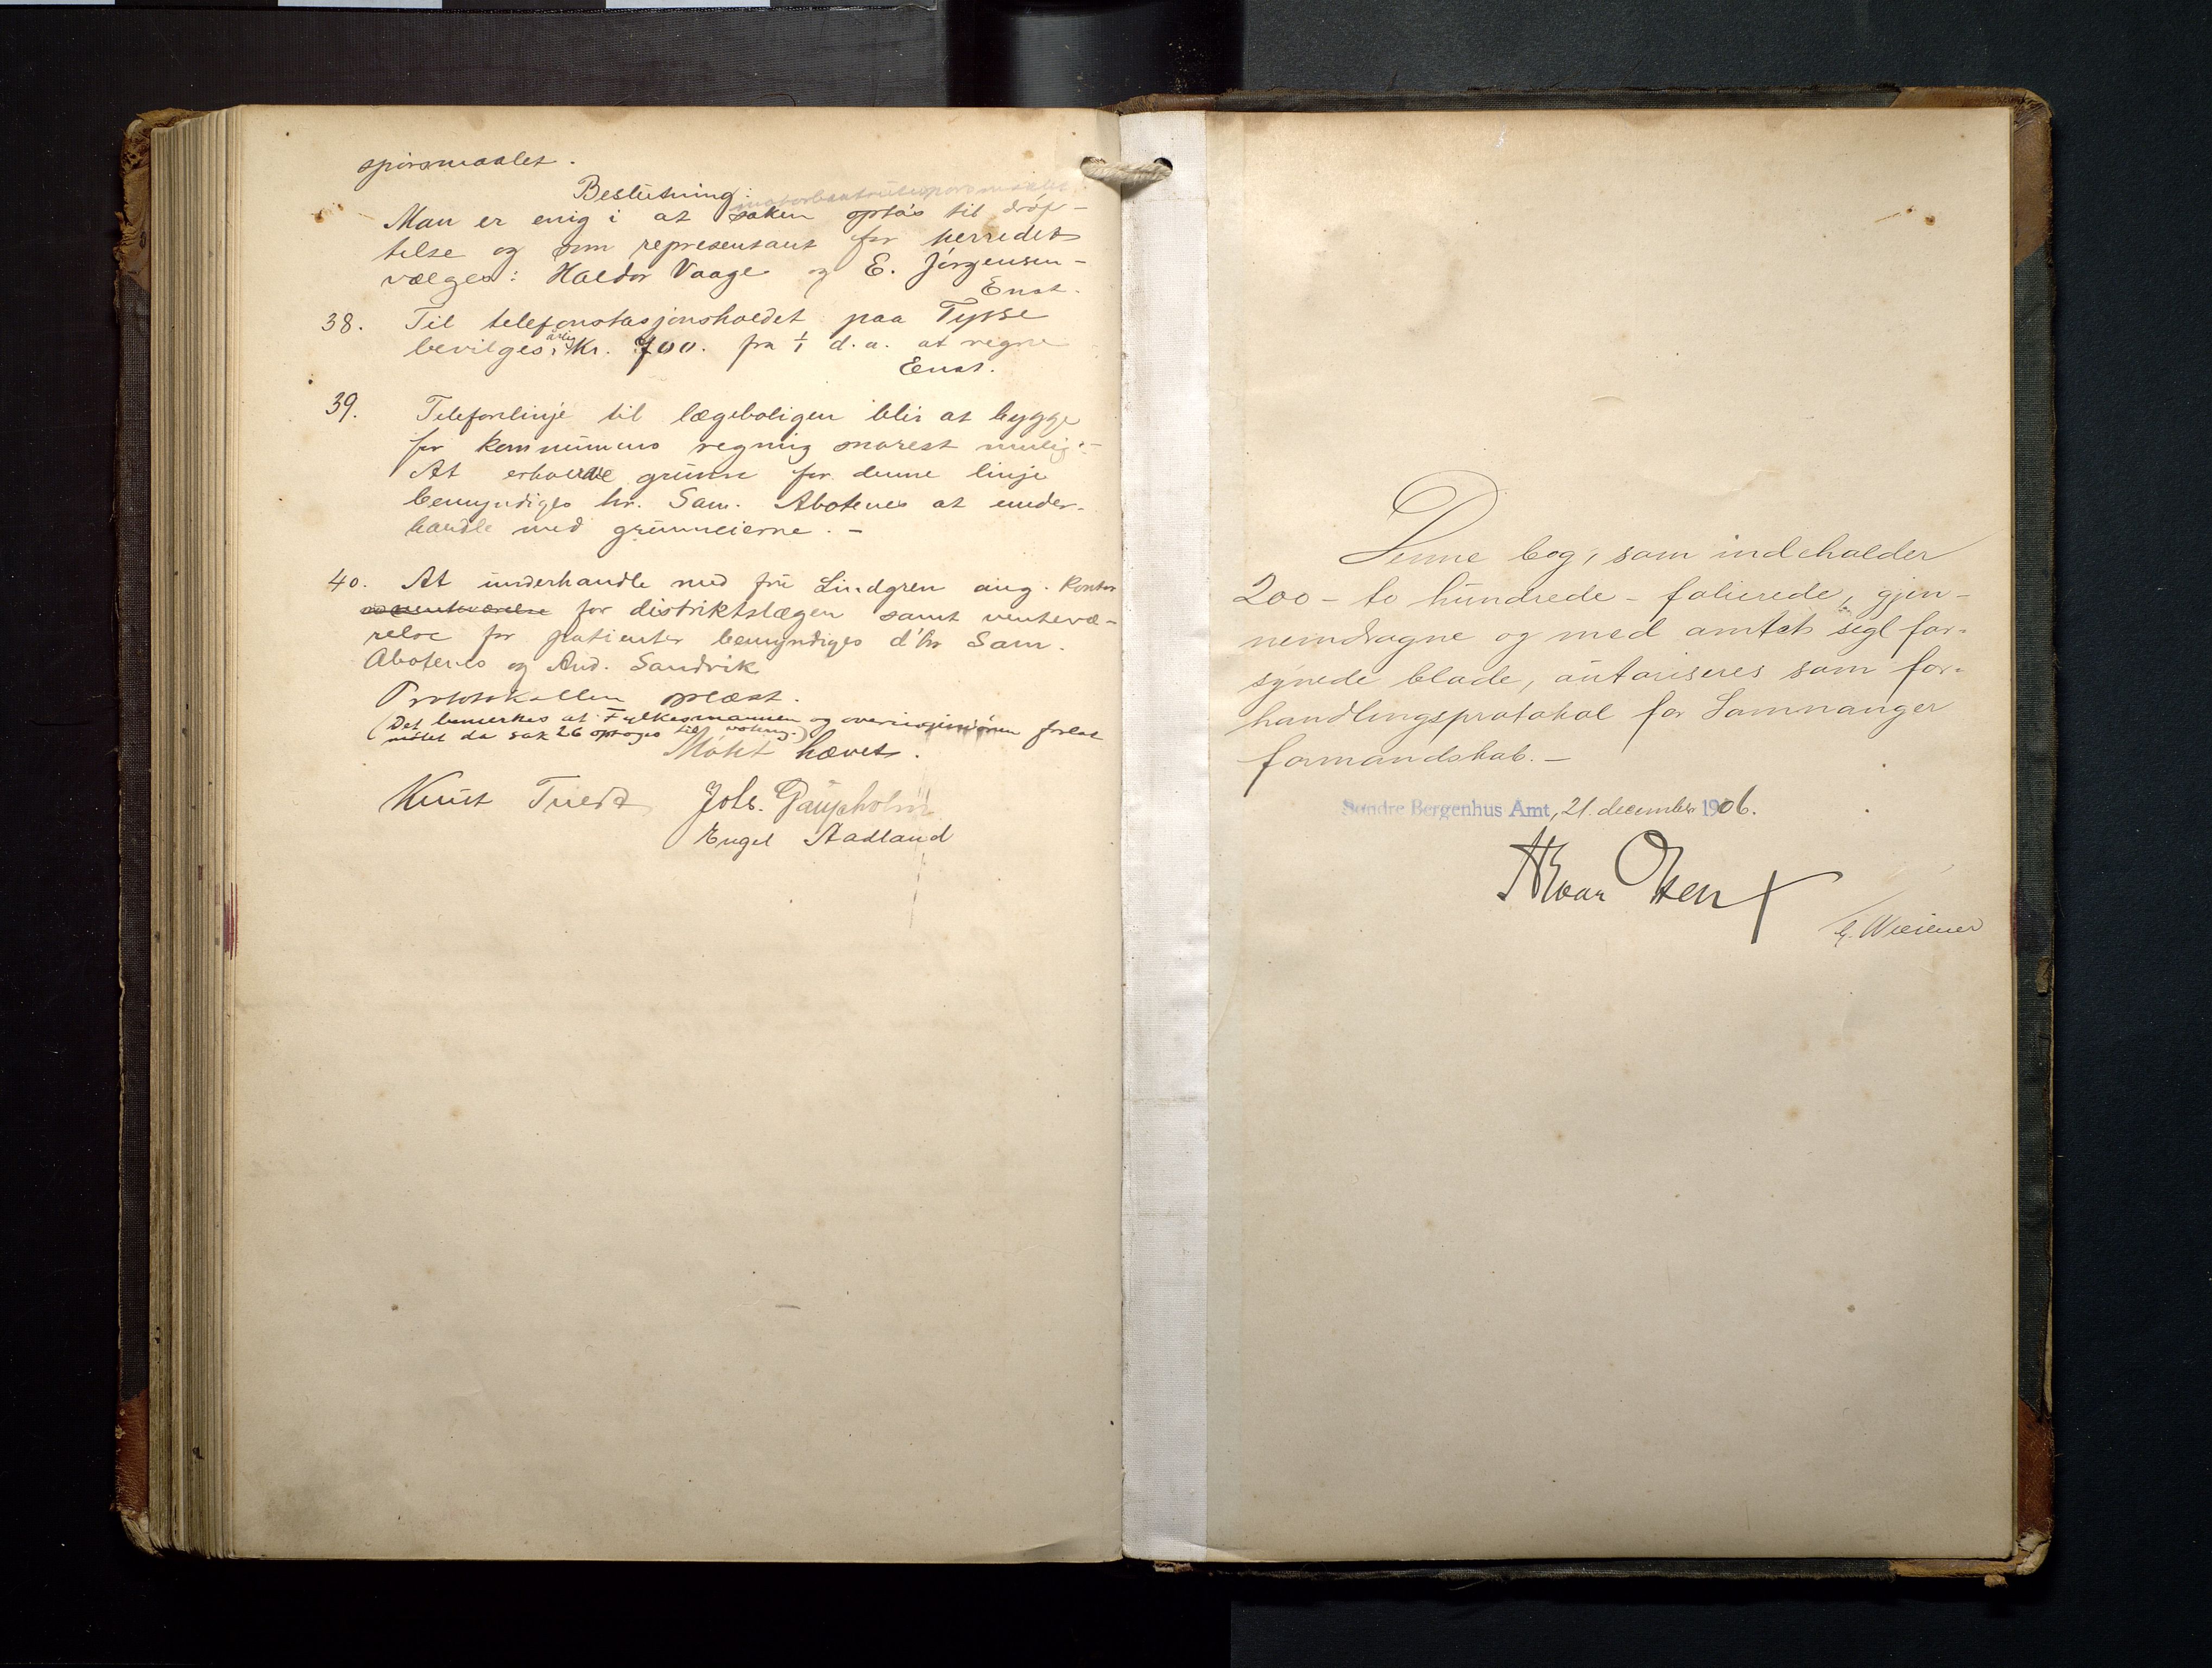 spørsmaalet.
Beslutning:
motorbaatrutespørsmaalet
Man er enig i at saken optas til drøf-
telse og som representant for herredet
vælges: Haldor Vaage og E. Jørgensen -
Enst.
38. Til telefonstasjonsholdet paa Tysse
bevilges årlig Kr. 700. fra 1/1 d.a. at regne
Enst.
39. Telefonlinje til lægeboligen blir at bygge
for kommunens regning snarest mulig. -
At erhverve grunn for denne linje
bemyndiges hr. Sam. Abotenes at under-
handle med grunneierne. -
40. At underhandle med fru Lindgren ang. kontor
for distriktslægen samt ventevæ-
relse for patienter bemyndiges d'hr Sam.
Abotenes og And. Sandvik
Protokollen oplæst.
(Det bemerkes at Fylkesmannen og overingeniøren forlot
møtet da sak 26 optoges til votering.)
Møtet hævet.
Knut Tveit Johs. Gaupholm
Engel Aadland
Denne bog, som indeholder
200 - to hundrede - folierede, gjen-
nemdragne og med amtets segl for-
synede blade, autoriseres som for-
handlingsprotokol for Samnanger
formandskab. -
Søndre Bergenhus Amt, 21. december 1906.
Olsen